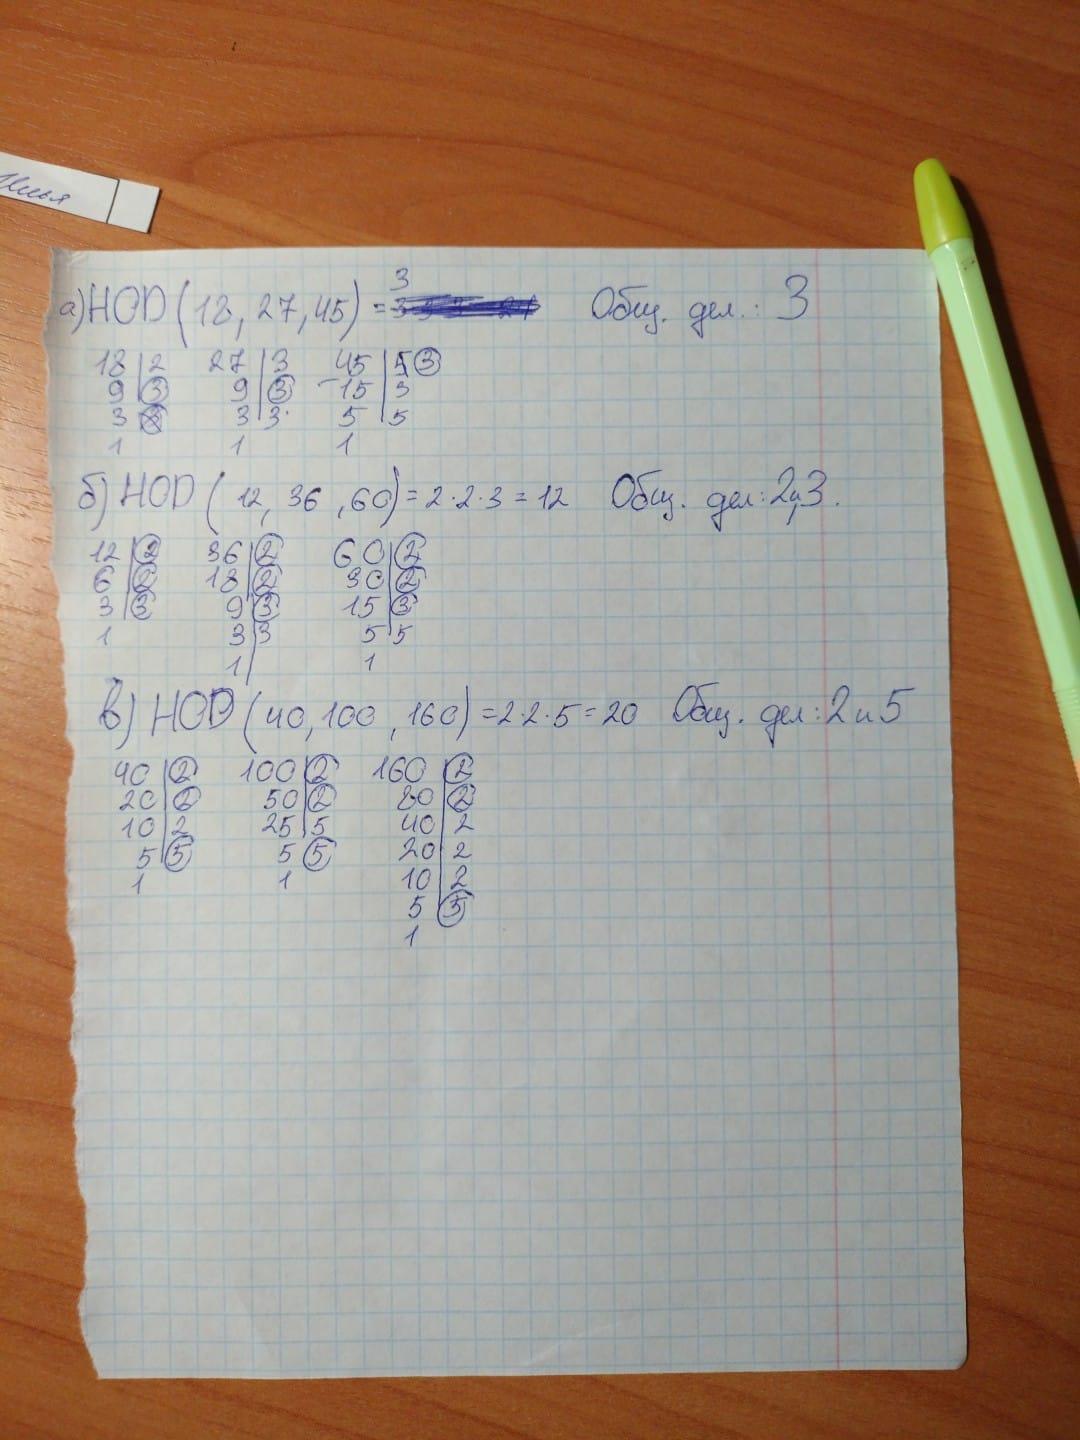 Илья
3
а) НОД (18, 27, 45) = Общ. дел.: 3
18 2 27 3 45 5 3
9 3 9 3 15 3
3 3 3 5 5
1 1 1
б) НОД (12, 36, 60) = 2·2·3 = 12 Общ. дел: 2 и 3.
12 2 36 2 60 2
6 2 18 2 30 2
3 3 9 3 15 3
1 3 3 5 5
1 1
в) НОД (40, 100, 160) = 2·2·5 = 20 Общ. дел: 2 и 5
40 2 100 2 160 2
20 2 50 2 80 2
10 2 25 5 40 2
5 5 5 5 20 2
1 1 10 2
5 5
1